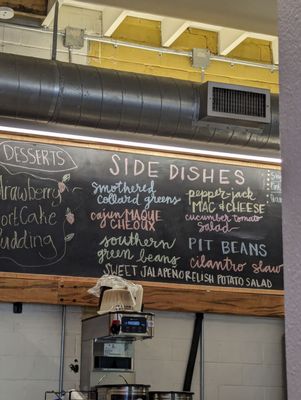 DESSERTS
Strawberry
Shortcake
Pudding
SIDE DISHES
smothered
collard greens
cajun MAQUE
CHEOUX
southern
green beans
pepper-jack
MAC & CHEESE
cucumber tomato
salad
PIT BEANS
cilantro slaw
SWEET JALAPEÑO RELISH POTATO SALAD